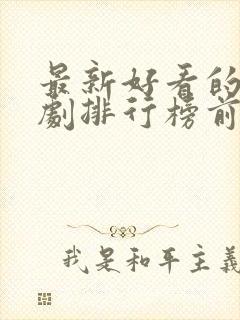 最新好看的
劇排行榜前
我是和平主義